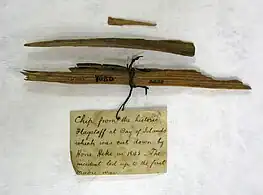 Chip from the historic
Flagstaff at Bay of Islands
which was cut down by
Hone Heke in 1845. The
incident led up to the first
Maori war